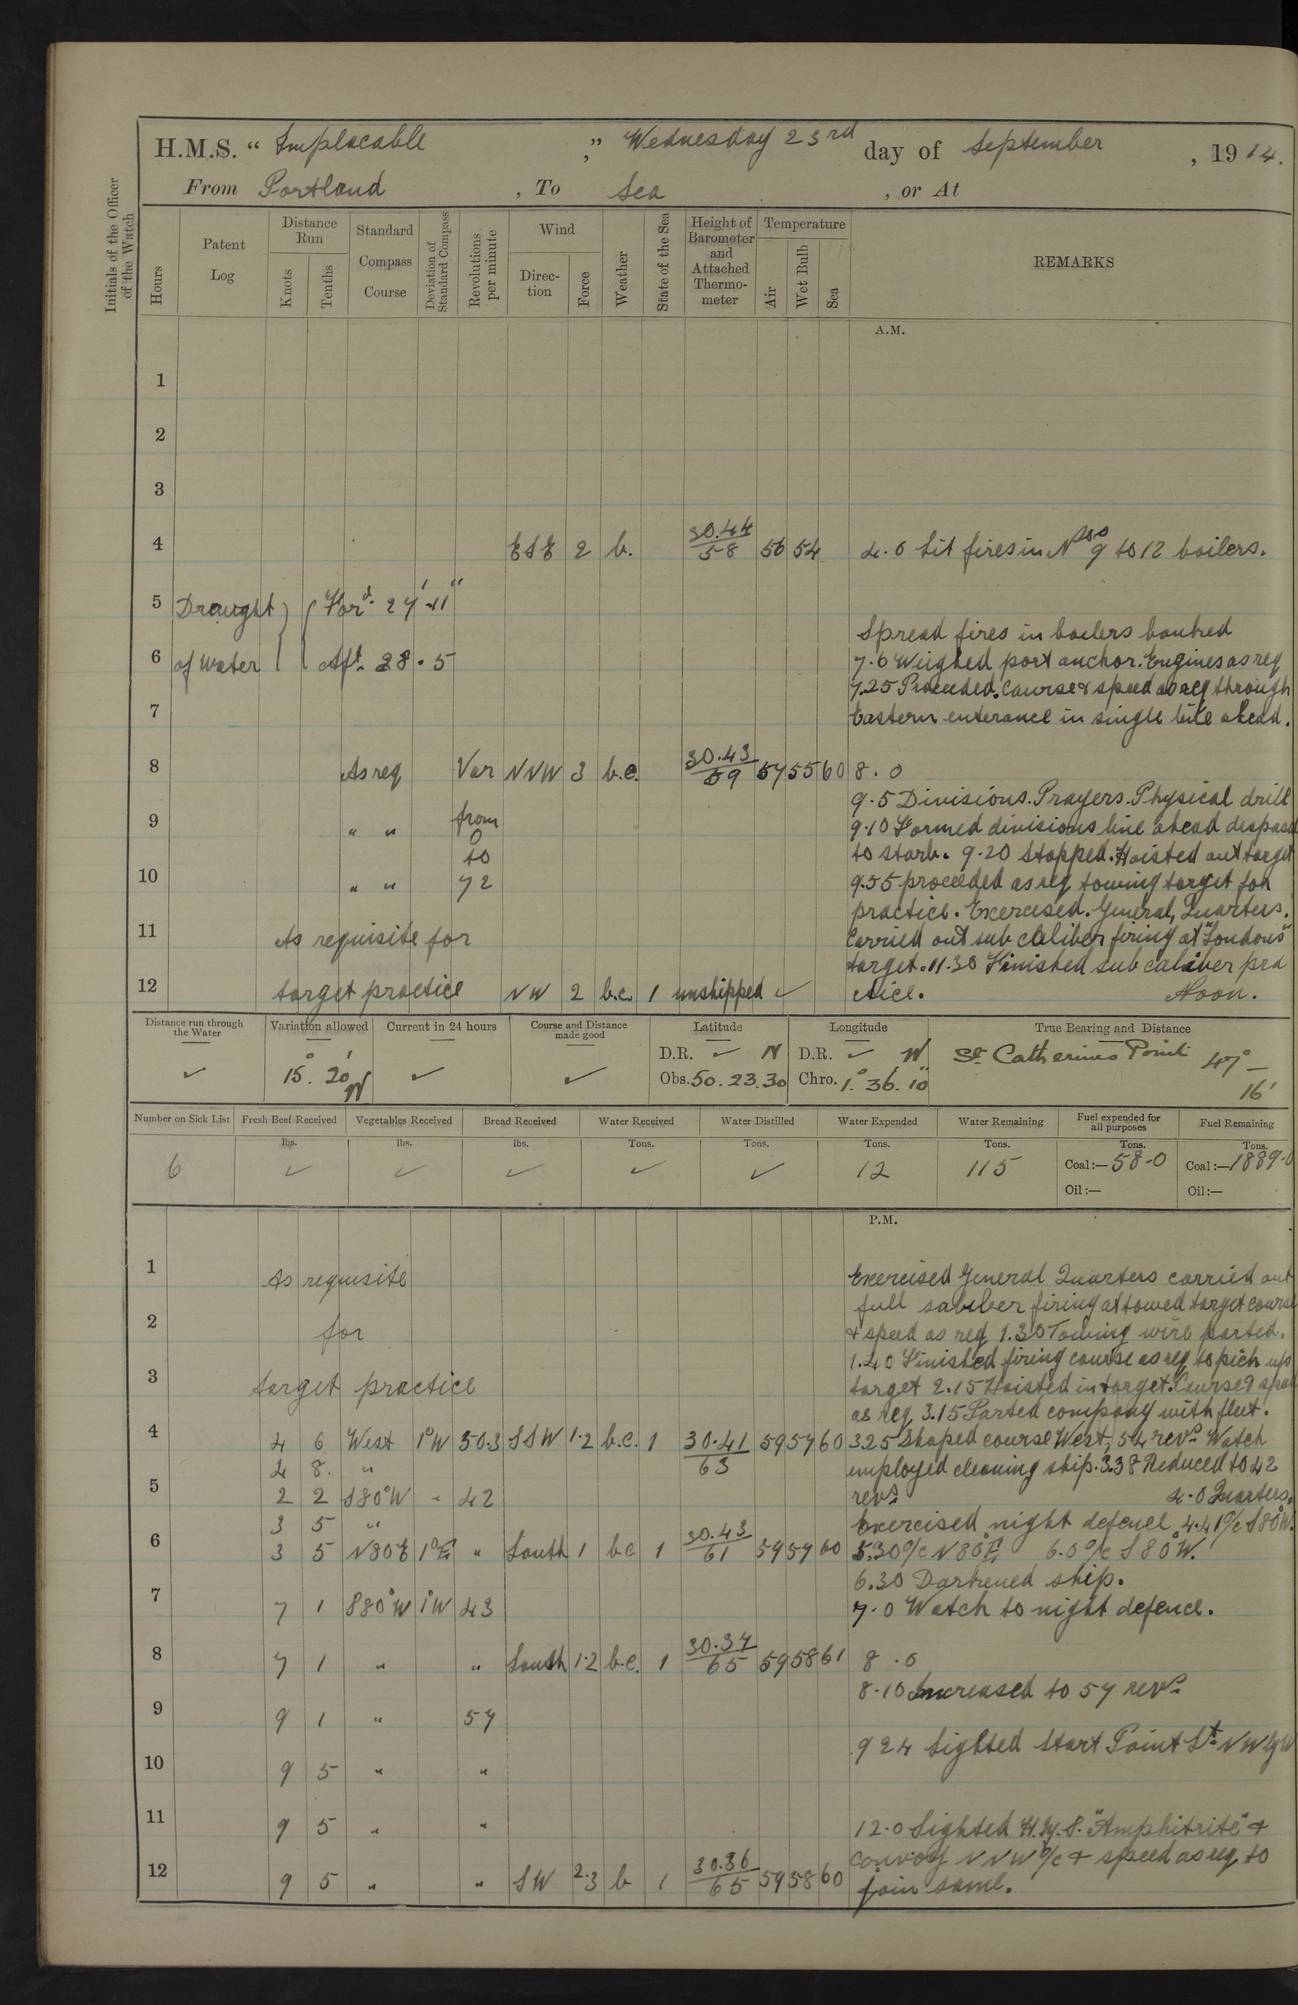 H.M.S. “ Implacable ,” Wednesday 23rd day of September , 1914.
From Portland , To Sea , or At
Initials of the Officer of the Watch
Hours
Patent Log
Distance Run
Knots
Tenths
Standard Compass Course
Deviation of Standard Compass
Revolutions per minute
Wind
Direc-tion
Force
Weather
State of the Sea
Height of Barometer and Attached Thermo-meter
Temperature
Air
Wet Bulb
Sea
REMARKS
A.M.
1
2
3
4 ESE 2 b. 30.44/58 56 54 4.0 Lit fires in Nos 9 to 12 boilers.
5 Draught Ford. 27'-11"
6 of water Aft. 28.5
Spread fires in boilers banked
7.6 Weighed port anchor. Engines as req
7.25 Proceeded. Course & speed as req through
7 Eastern enterance in single line ahead.
8 As req Var NNW 3 b.c. 30.43/59 57 55 60 8.0
9.5 Divisions. Prayers. Physical drill
9 " " from 0 9.10 Formed divisions line ahead disposed
to to starb. 9.20 Stopped. Hoisted out target
10 " " 72 9.55 proceeded as req towing target for
practice. Exercised. General, Quarters.
11 As requisite for Carried out sub caliber firing at "Londons"
target. 11.30 Finished sub caliber pra
12 target practice NW 2 b.c. 1 unshipped ✓ ctice. Noon.
Distance run through the Water ✓
Variation allowed 15°. 20' W
Current in 24 hours ✓
Course and Distance made good ✓
Latitude
D.R. ✓ N
Obs. 50. 23. 30
Longitude
D.R. ✓ W
Chro. 1°. 36. 10"
True Bearing and Distance
St Catherines Point 47° —
16'
Number on Sick List 6
Fresh Beef Received lbs. ✓
Vegetables Received lbs. ✓
Bread Received lbs. ✓
Water Received Tons. ✓
Water Distilled Tons. ✓
Water Expended Tons. 12
Water Remaining Tons. 115
Fuel expended for all purposes Tons.
Coal:— 58.0
Oil:—
Fuel Remaining Tons.
Coal:— 1889.0
Oil:—
P.M.
1 As requisite Exercised General Quarters carried out
full firing at towed target course
2 for & speed as req 1.30 Towing wire parted.
1.40 Finished firing course as req to pick up
3 target practice target 2.15 Hoisted in target. Course & speed
as req 3.15 Parted company with fleet.
4 4 6 West 1°W 50.3 SSW 1.2 b.c. 1 30.41/63 59 57 60 3.25 Shaped course West, 54 revs Watch
4 8. " employed cleaning ship. 3.38 Reduced to 42
5 2 2 S80°W " 42 revs 4.0 Quarters.
3 5 " Exercised night defence 4.41 o/c S80°W.
6 3 5 N80E 1°E " South 1 bc 1 30.43/61 59 57 60 5.30 o/c N80°E 6.0 o/c S80°W.
6.30 Darkened ship.
7 7 1 S80°W 1°W 43 7.0 Watch to night defence.
8 7 1 " " South 1.2 b.c. 1 30.37/65 59 58 61 8.0
8.10 Increased to 57 revs
9 9 1 " 57
9 24 Sighted Start Point Lt NWbyW
10 9 5 " "
11 9 5 " " 12.0 Sighted H.M.S. "Amphitrite" &
convoy NNW o/c & speed as req to
12 9 5 " " SW 2.3 b 1 30.36/65 59 58 60 join same.